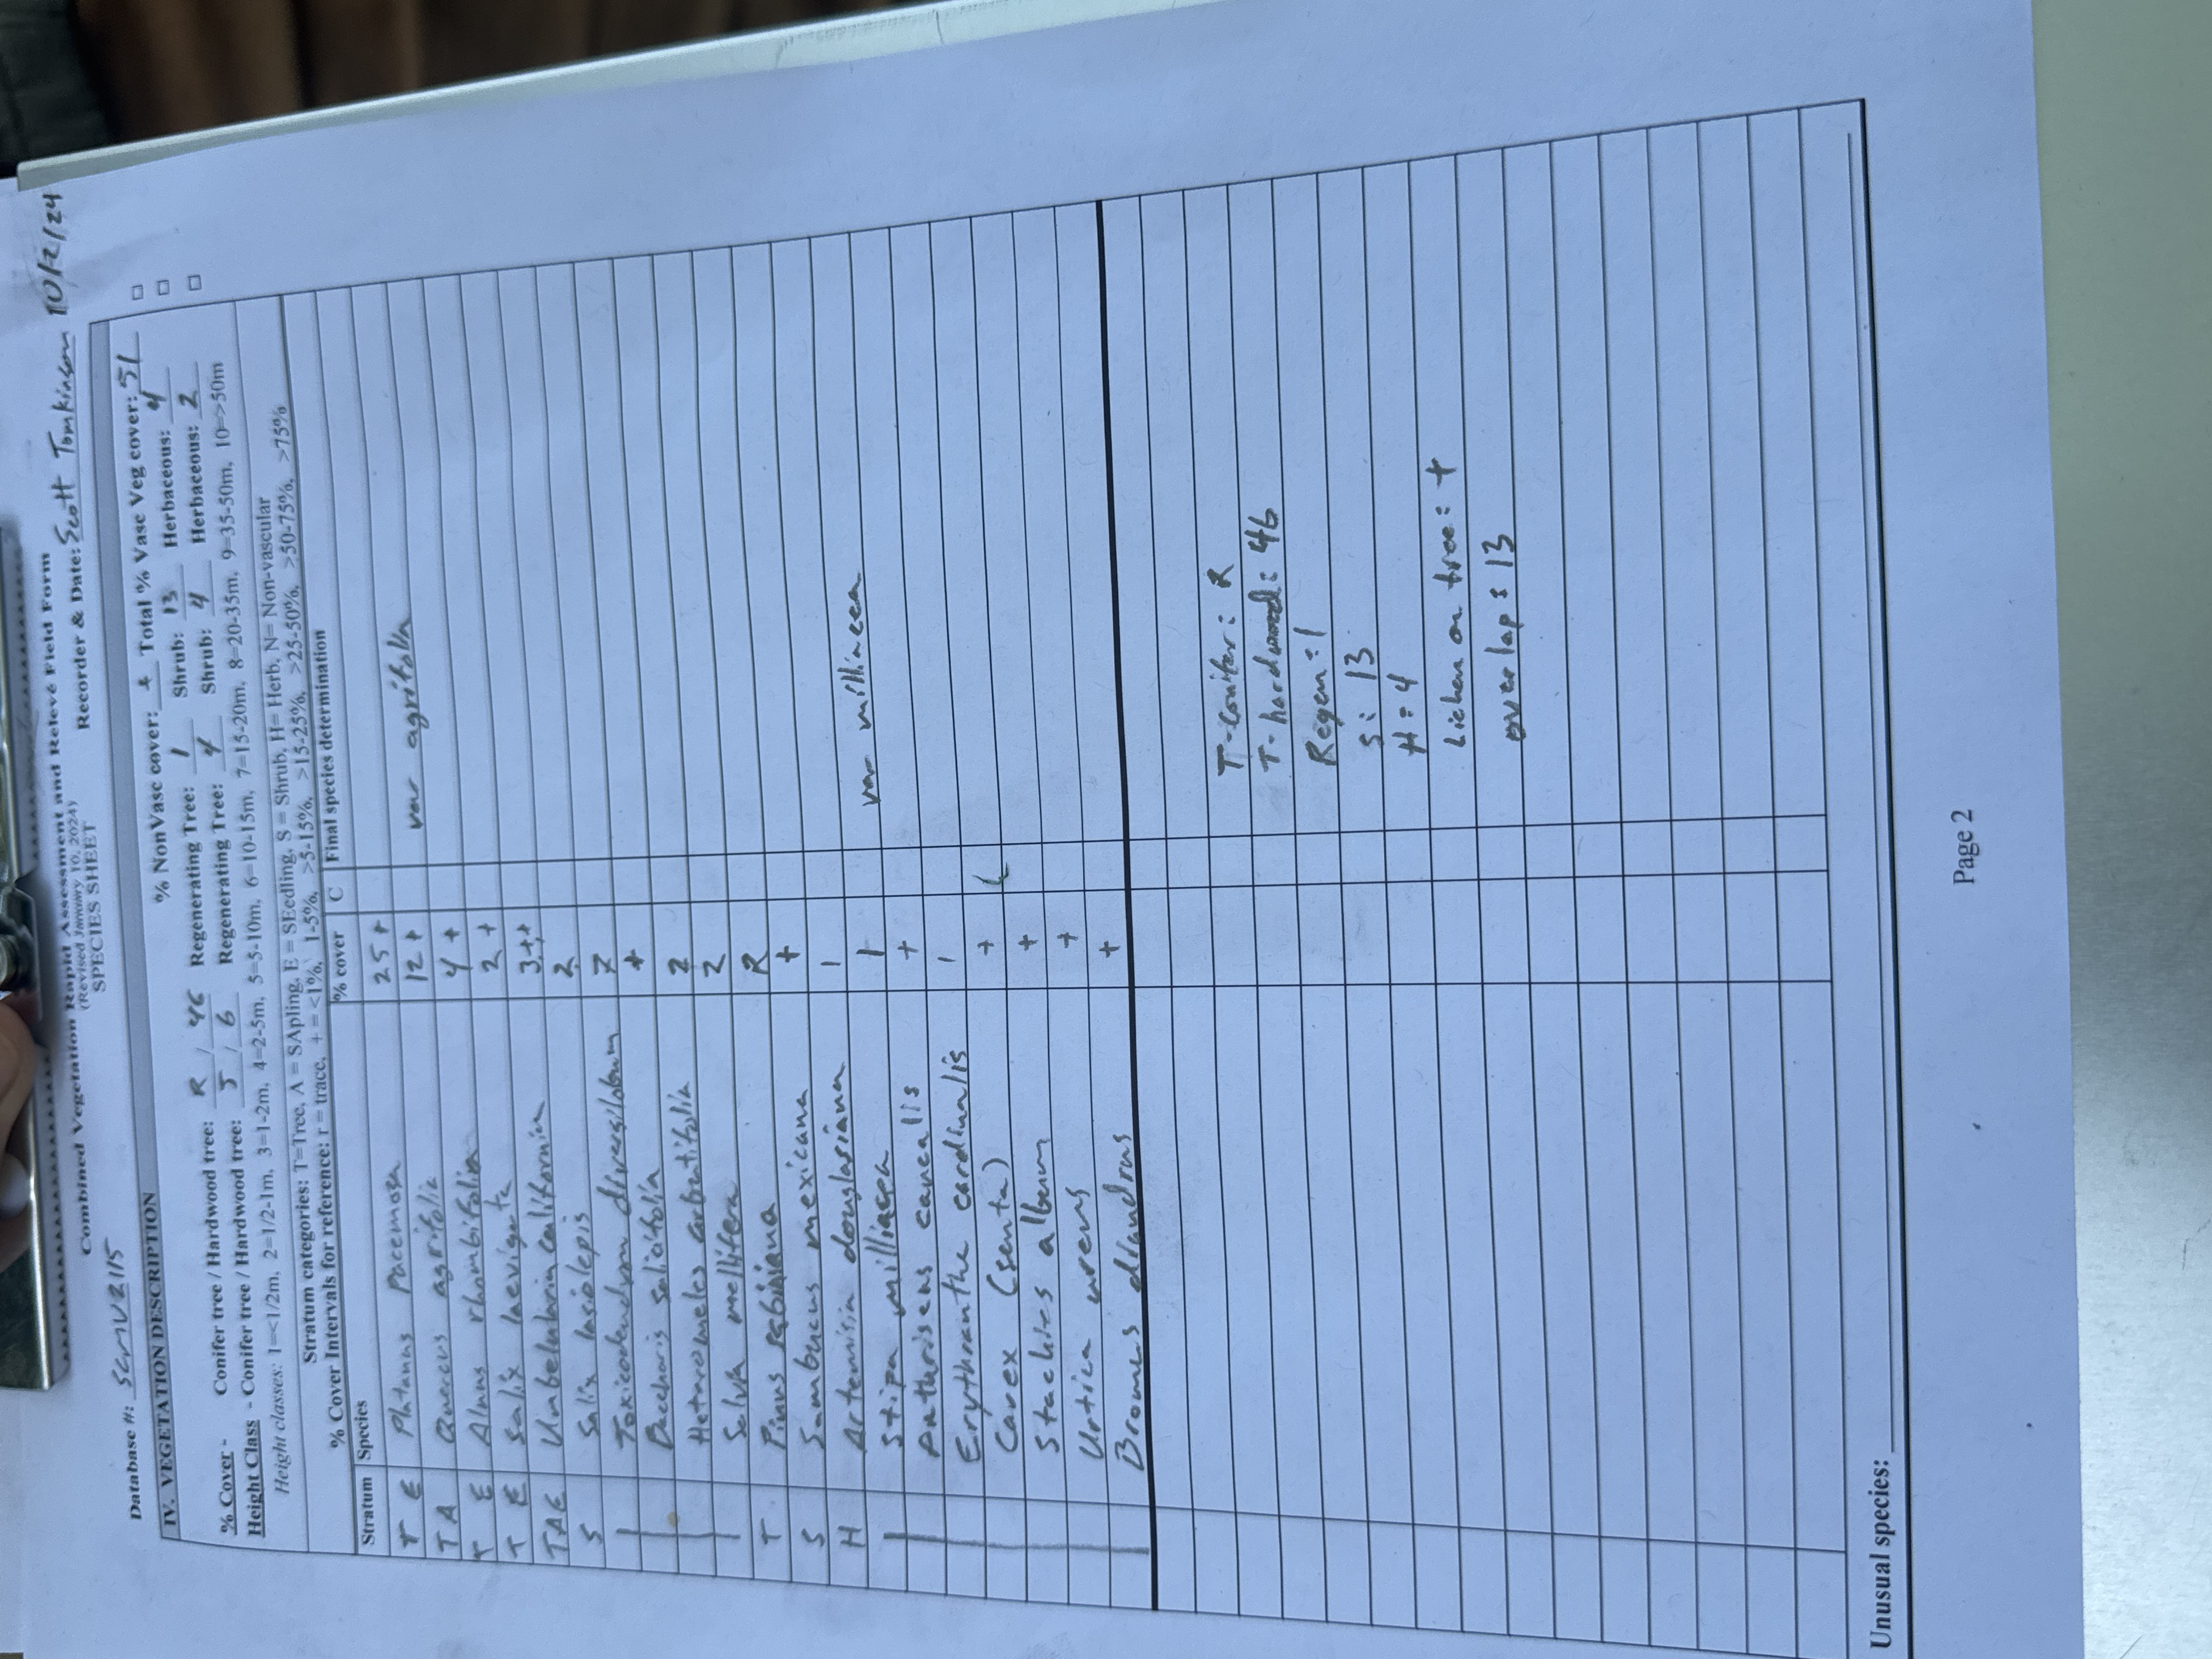 Combined Vegetation Rapid Assessment and Relevé Field Form
(Revised January 10, 2024)
SPECIES SHEET
Database #: SCMV2115 Recorder & Date: Scott Tomkinson 10/2/24
IV. VEGETATION DESCRIPTION
% NonVasc cover: + Total % Vasc Veg cover: 51
% Cover - Conifer tree / Hardwood tree: R / 46 Regenerating Tree: 1 Shrub: 13 Herbaceous: 4
Height Class - Conifer tree / Hardwood tree: 5 / 6 Regenerating Tree: 4 Shrub: 4 Herbaceous: 2
Height classes: 1=<1/2m, 2=1/2-1m, 3=1-2m, 4=2-5m, 5=5-10m, 6=10-15m, 7=15-20m, 8=20-35m, 9=35-50m, 10=>50m
Stratum categories: T=Tree, A = SApling, E = SEedling, S = Shrub, H= Herb, N= Non-vascular
% Cover Intervals for reference: r = trace, + = <1%, 1-5%, >5-15%, >15-25%, >25-50%, >50-75%, >75%
Stratum Species % cover C Final species determination
T E Platanus racemosa 25 +
T A Quercus agrifolia 12 + var agrifolia
T E Alnus rhombifolia 4 +
T E Salix laevigata 2 +
TAE Umbellularia californica 3,+,+
S Salix lasiolepis 2
Toxicodendron diversilobum 7
Baccharis salicifolia +
Heteromeles arbutifolia 2
Salvia mellifera 2
T Pinus sabiniana R
S Sambucus mexicana +
H Artemisia douglasiana 1
Stipa milliacea 1 var milliacea
Anthriscus caucalis +
Erythranthe cardinalis 1
Carex (senta) + C
Stachys album +
Urtica urens +
Bromus diandrus +
T-conifer: R
T-hardwood: 46
Regen: 1
S: 13
H: 4
Lichen on tree: +
overlap: 13
Unusual species:
Page 2